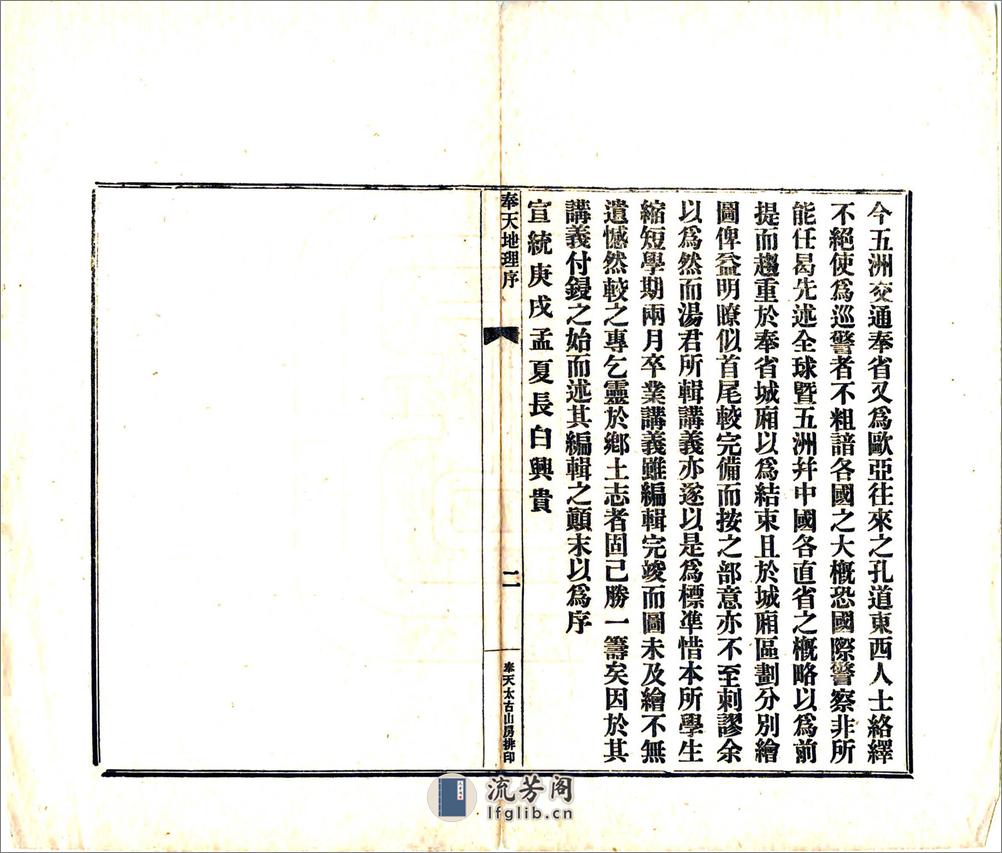 今五洲交通奉省又爲歐亞往來之孔道東西人士絡繹
不絕使爲巡警者不粗諳各國之大概恐國際警察非所
能任曷先述全球暨五洲幷中國各直省之概略以爲前
提而趨重於奉省城廂以爲結束且於城廂區劃分別繪
圖俾益明瞭似首尾較完備而按之部意亦不至刺謬余
以爲然而湯君所輯講義亦遂以是爲標準惜本所學生
縮短學期兩月卒業講義雖編輯完竣而圖未及繪不無
遺憾然較之專乞靈於鄉土志者固已勝一籌矣因於其
講義付鋟之始而述其編輯之顚末以爲序
宣統庚戌孟夏長白興貴
奉天地理序
二
奉天太古山房排印
流芳阁
lfglib.cn